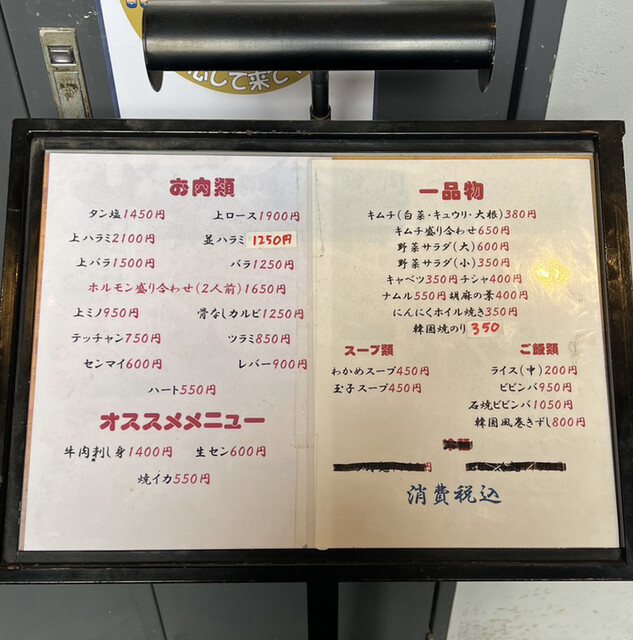 して来て
お肉類
タン塩1450円 上ロース1900円
上ハラミ2100円 並ハラミ 1250円
上バラ1500円 バラ1250円
ホルモン盛り合わせ(2人前)1650円
上ミノ950円 骨なしカルビ1250円
テッチャン750円 ツラミ850円
センマイ600円 レバー900円
ハート550円
オススメメニュー
牛肉刺し身1400円 生セン600円
焼イカ550円
一品物
キムチ(白菜・キュウリ・大根)380円
キムチ盛り合わせ650円
野菜サラダ(大)600円
野菜サラダ(小)350円
キャベツ350円チシャ400円
ナムル550円胡麻の葉400円
にんにくホイル焼き350円
韓国焼のり 350
スープ類
わかめスープ450円
玉子スープ450円
ご飯類
ライス(中)200円
ビビンバ950円
石焼ビビンバ1050円
韓国風巻きずし800円
消費税込